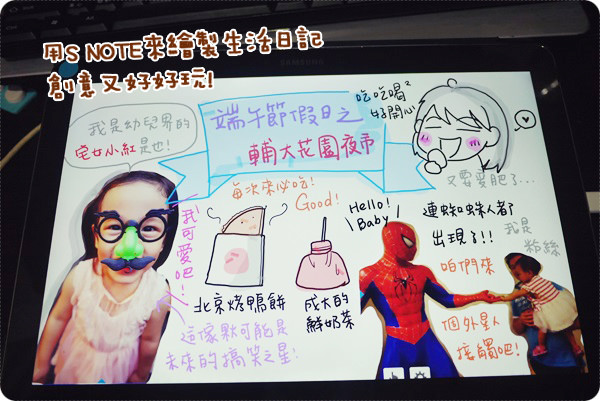 用S NOTE來繪製生活日記
創意又好好玩!
SAMSUNG
我是幼兒界的
宅女小紅是也!
端午節假日之
輔大花園夜市
吃吃喝²
好開心
又要變肥了...
我可愛吧!
每次來必吃!
Good!
北京烤鴨餅
成大的
鮮奶茶
Hello!
Baby
連蜘蛛人都
出現了!!
我是
粉絲
咱們來
個外星人
接觸吧!
這傢歉可能是
未來的搞笑之星!